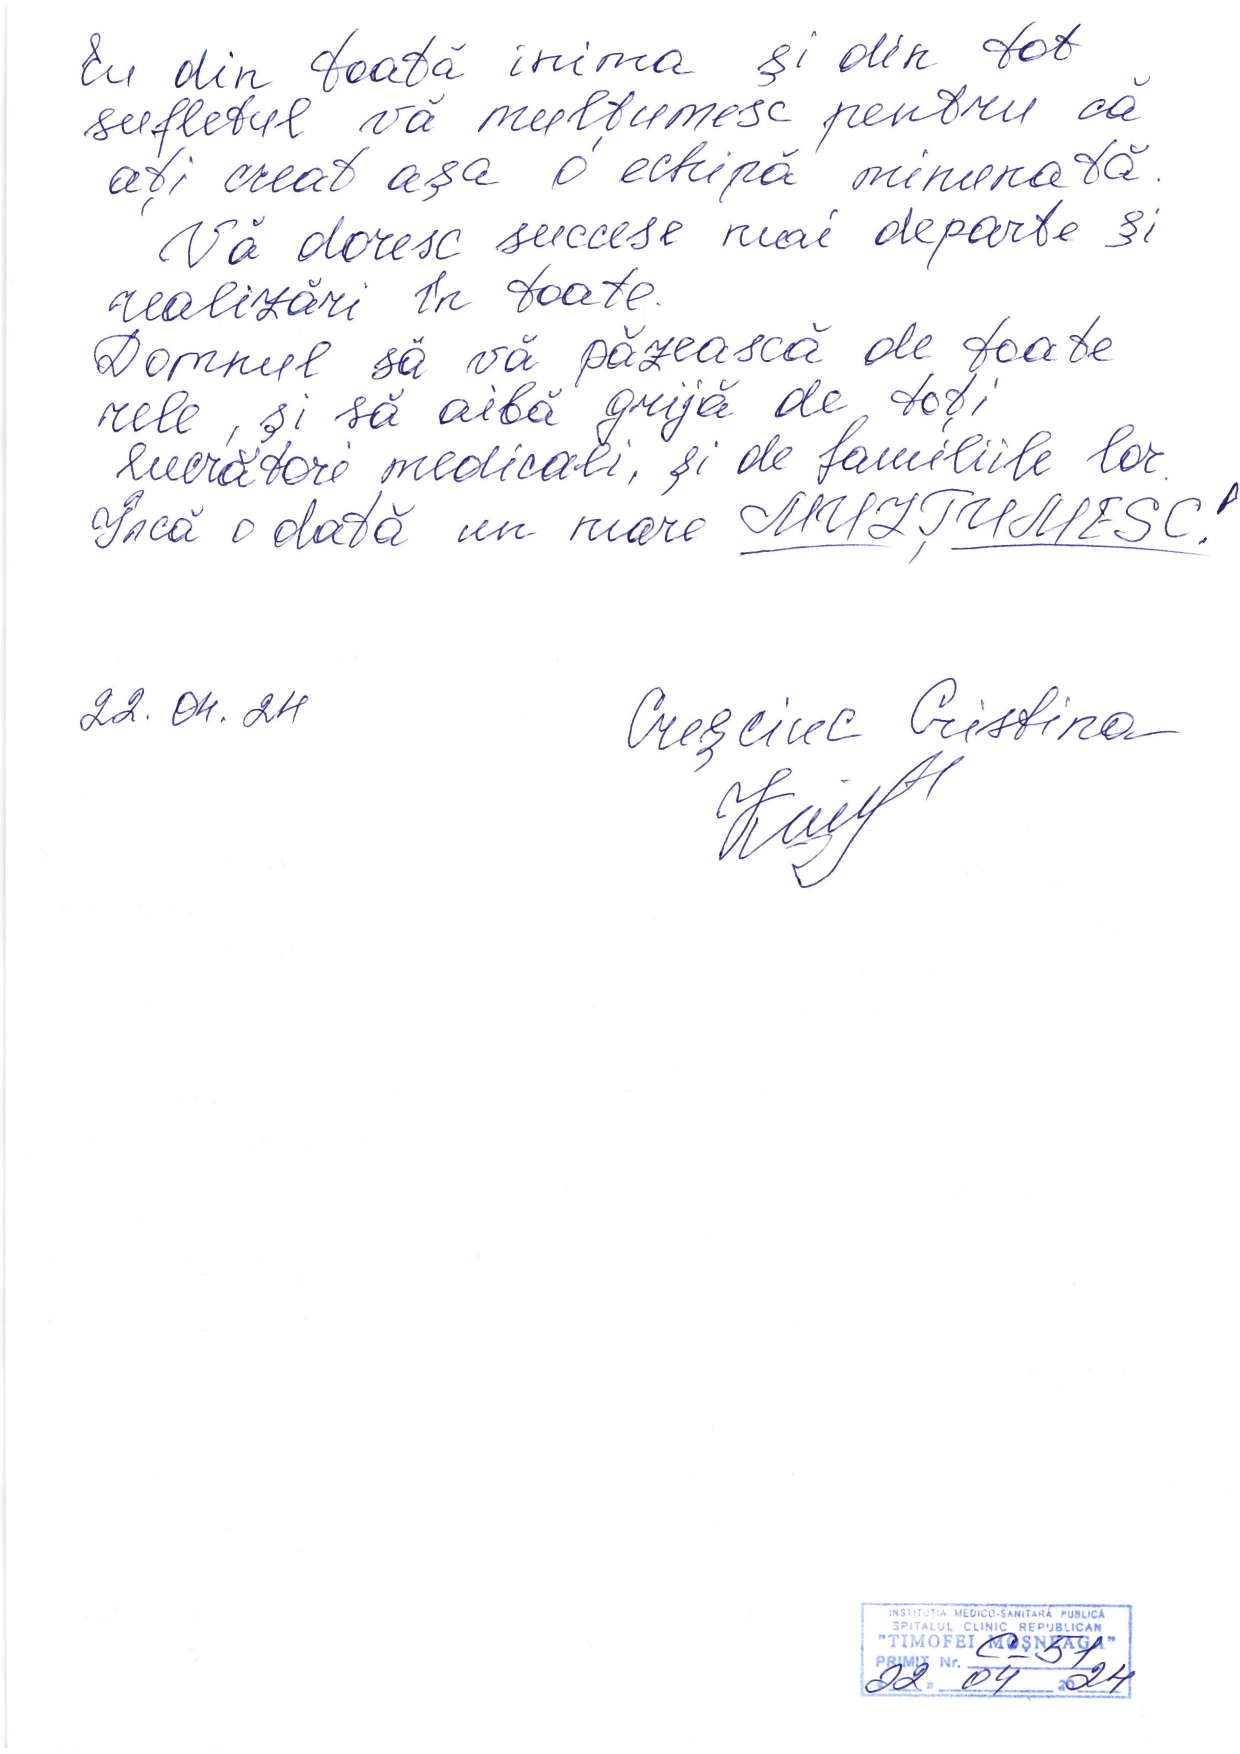 Eu din toată inima și din tot
sufletul vă mulțumesc pentru că
ați creat așa o echipă minunată.
Vă doresc succese mai departe și
realizări în toate.
Domnul să vă păzească de toate
rele, și să aibă grijă de toți
lucrători medicali, și de familiile lor.
Încă o dată un mare MULȚUMESC!
22.04.24
Creșciuc Cristina
INSTITUȚIA MEDICO-SANITARĂ PUBLICĂ
SPITALUL CLINIC REPUBLICAN
"TIMOFEI MOȘNEAGA"
PRIMIT Nr. C-51
22 » 04 2024